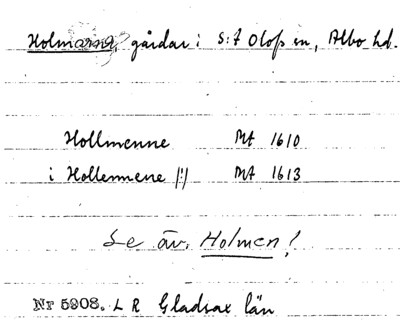 Holmarna, gårdar i S:t Olofs sn, Albo hd.
Hollmenne Mt 1610
i Hollenmene /:/ Mt 1613
Se äv. Holmen!
Nr 5908. L R Gladsax län